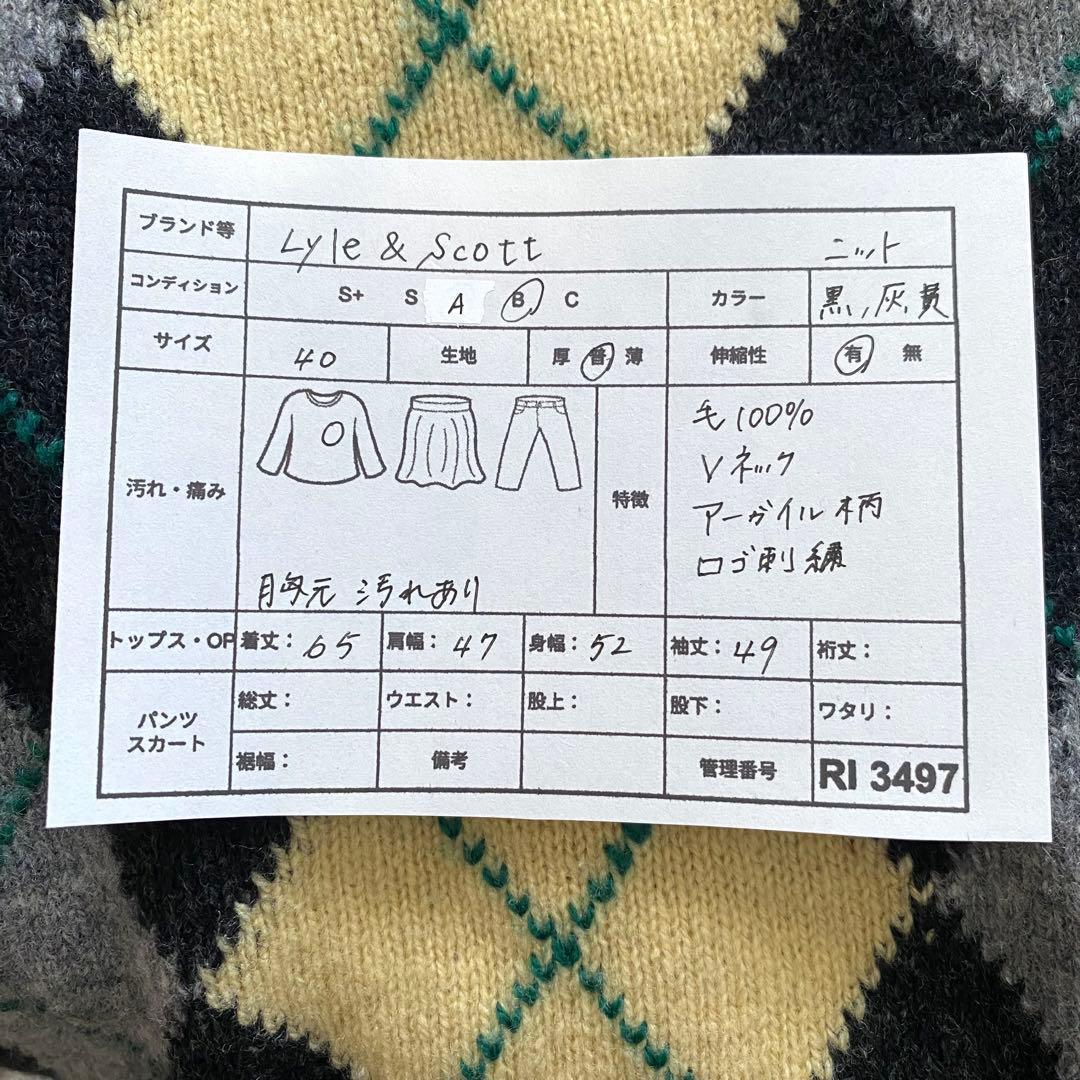 ブランド等 Lyle & Scott ニット
コンディション S+ S A B C カラー 黒,灰,黄
サイズ 40 生地 厚 普 薄 伸縮性 有 無
汚れ・痛み
胸元 汚れあり
特徴
毛100%
Vネック
アーガイル柄
ロゴ刺繍
トップス・OP 着丈: 65 肩幅: 47 身幅: 52 袖丈: 49 裄丈:
パンツ
スカート
総丈: ウエスト: 股上: 股下: ワタリ:
裾幅: 備考 管理番号 RI 3497